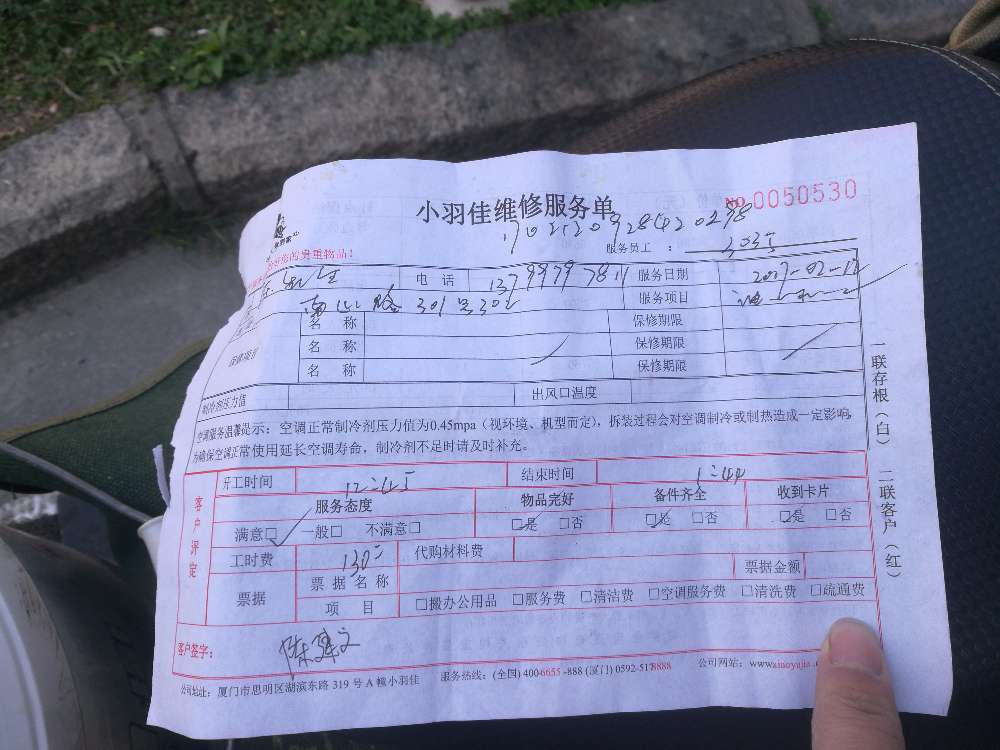 小羽佳维修服务单
NO 0050530
1702120928420298
服务员工 :
的贵重物品!
电 话 13799797811 服务日期 2017-02-12
301号302 服务项目
名 称 保修期限
名 称 保修期限
名 称 保修期限
制冷剂压力值 出风口温度
空调服务温馨提示: 空调正常制冷剂压力值为0.45mpa (视环境、机型而定), 拆装过程会对空调制冷或制热造成一定影响,
为确保空调正常使用延长空调寿命, 制冷剂不足时请及时补充。
客户评定
开工时间 结束时间
服务态度 物品完好 备件齐全 收到卡片
满意□ 一般□ 不满意□ □是 □否 □是 □否 □是 □否
工时费 130 代购材料费
票据 票据名称 票据金额
项 目 □搬办公用品 □服务费 □清洁费 □空调服务费 □清洗费 □疏通费
客户签字:
公司地址: 厦门市思明区湖滨东路 319 号 A 幢小羽佳 服务热线: (全国) 400-6655-888 (厦门) 0592-5178888 公司网站: www.xiaoyujia.
一联存根(白) 二联客户(红)